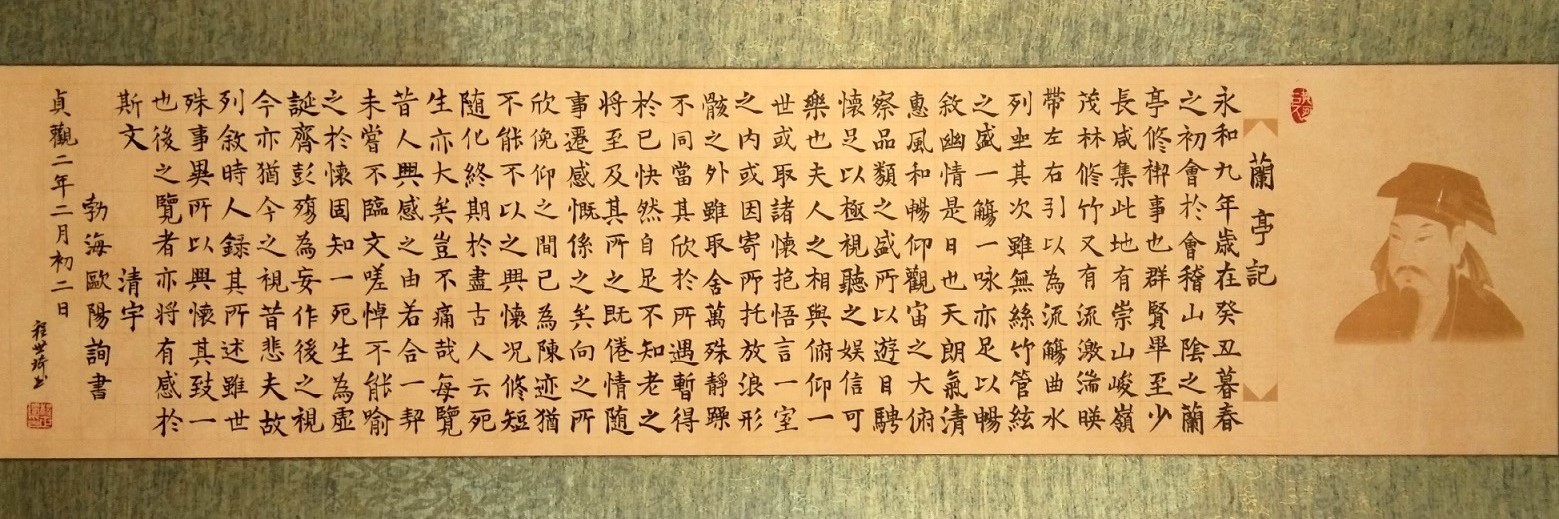 蘭亭記
永和九年歲在癸丑暮春
之初會於會稽山陰之蘭
亭修禊事也群賢畢至少
長咸集此地有崇山峻嶺
茂林修竹又有流激湍暎
帶左右引以為流觴曲水
列坐其次雖無絲竹管絃
之盛一觴一咏亦足以暢
敘幽情是日也天朗氣清
惠風和暢仰觀宙之大俯
察品類之盛所以遊目騁
懷足以極視聽之娱信可
樂也夫人之相與俯仰一
世或取諸懷抱悟言一室
之內或因寄所托放浪形
骸之外雖取舍萬殊靜躁
不同當其欣於所遇暫得
於已快然自足不知老之
將至及其所之既倦情隨
事遷感慨係之矣向之所
欣俛仰之間已為陳迹猶
不能不以之興懷况修短
随化終期於盡古人云死
生亦大矣豈不痛哉每覽
昔人興感之由若合一契
未嘗不臨文嗟悼不能喻
之於懷固知一死生為虛
誕齊彭殤為妄作後之視
今亦猶今之視昔悲夫故
列敘時人録其所述雖世
殊事異所以興懷其致一
也後之覽者亦将有感於
斯文 清宇
勃海歐陽詢書
貞觀二年二月初二日